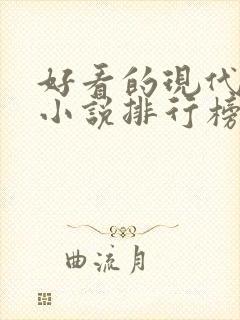 好看的现代
小说排行榜
曲流月